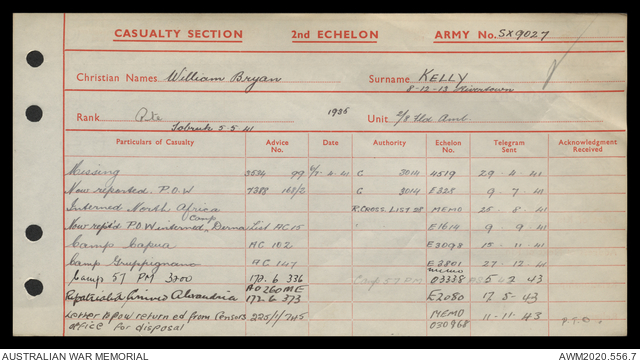 CASUALTY SECTION 2nd ECHELON ARMY No. SX9027
Christian Names William Bryan Surname KELLY
8-12-13
Rank Pte 1936 Unit 2/8 Fld Amb
Tobruk 5-5-41
Particulars of Casualty Advice No. Date Authority Echelon No. Telegram Sent Acknowledgment Received
Missing 3534 99 -4-41 C 3014 4519 29-4-41
Now reported P.O.W 7388 C 3014 E328 9-7-41
Interned North Africa R.CROSS. LIST 28 MEMO 25-8-41
Camp
Now rep'td P.O.W interned, Derna List AC 15 E1614 9-9-41
Camp Capua AC 102 E3098 15-11-41
Camp Gruppignano AC 147 E3801 27-12-41
MEMO
Camp 57 PM 3200 172.6 336 Camp 57 PM 03338 5 2 43
AO260ME
Repatriated Arrived Alexandria 172.6 373 E2080 12-5-43
Letter to POW returned from Censors 225/1/745 MEMO 11-11-43
office for disposal 030968
AUSTRALIAN WAR MEMORIAL AWM2020.556.7